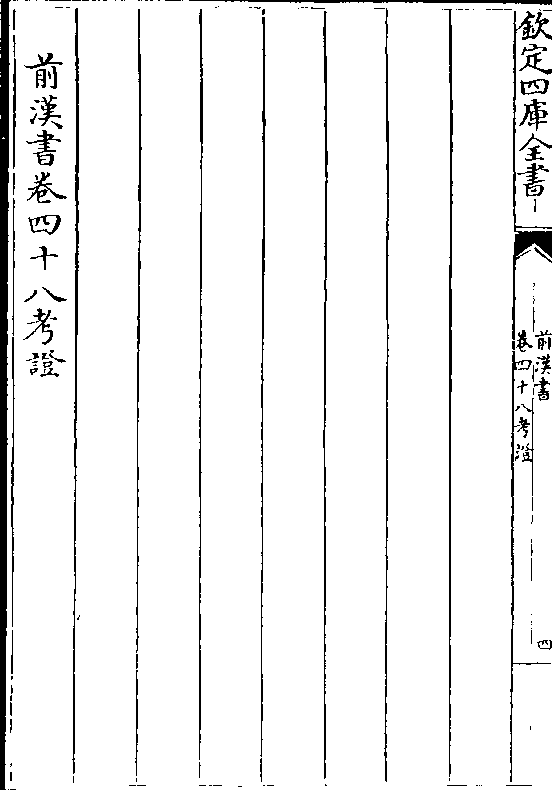 欽定四庫全書
前漢書
卷四十八考證
四
前漢書卷四十八考證